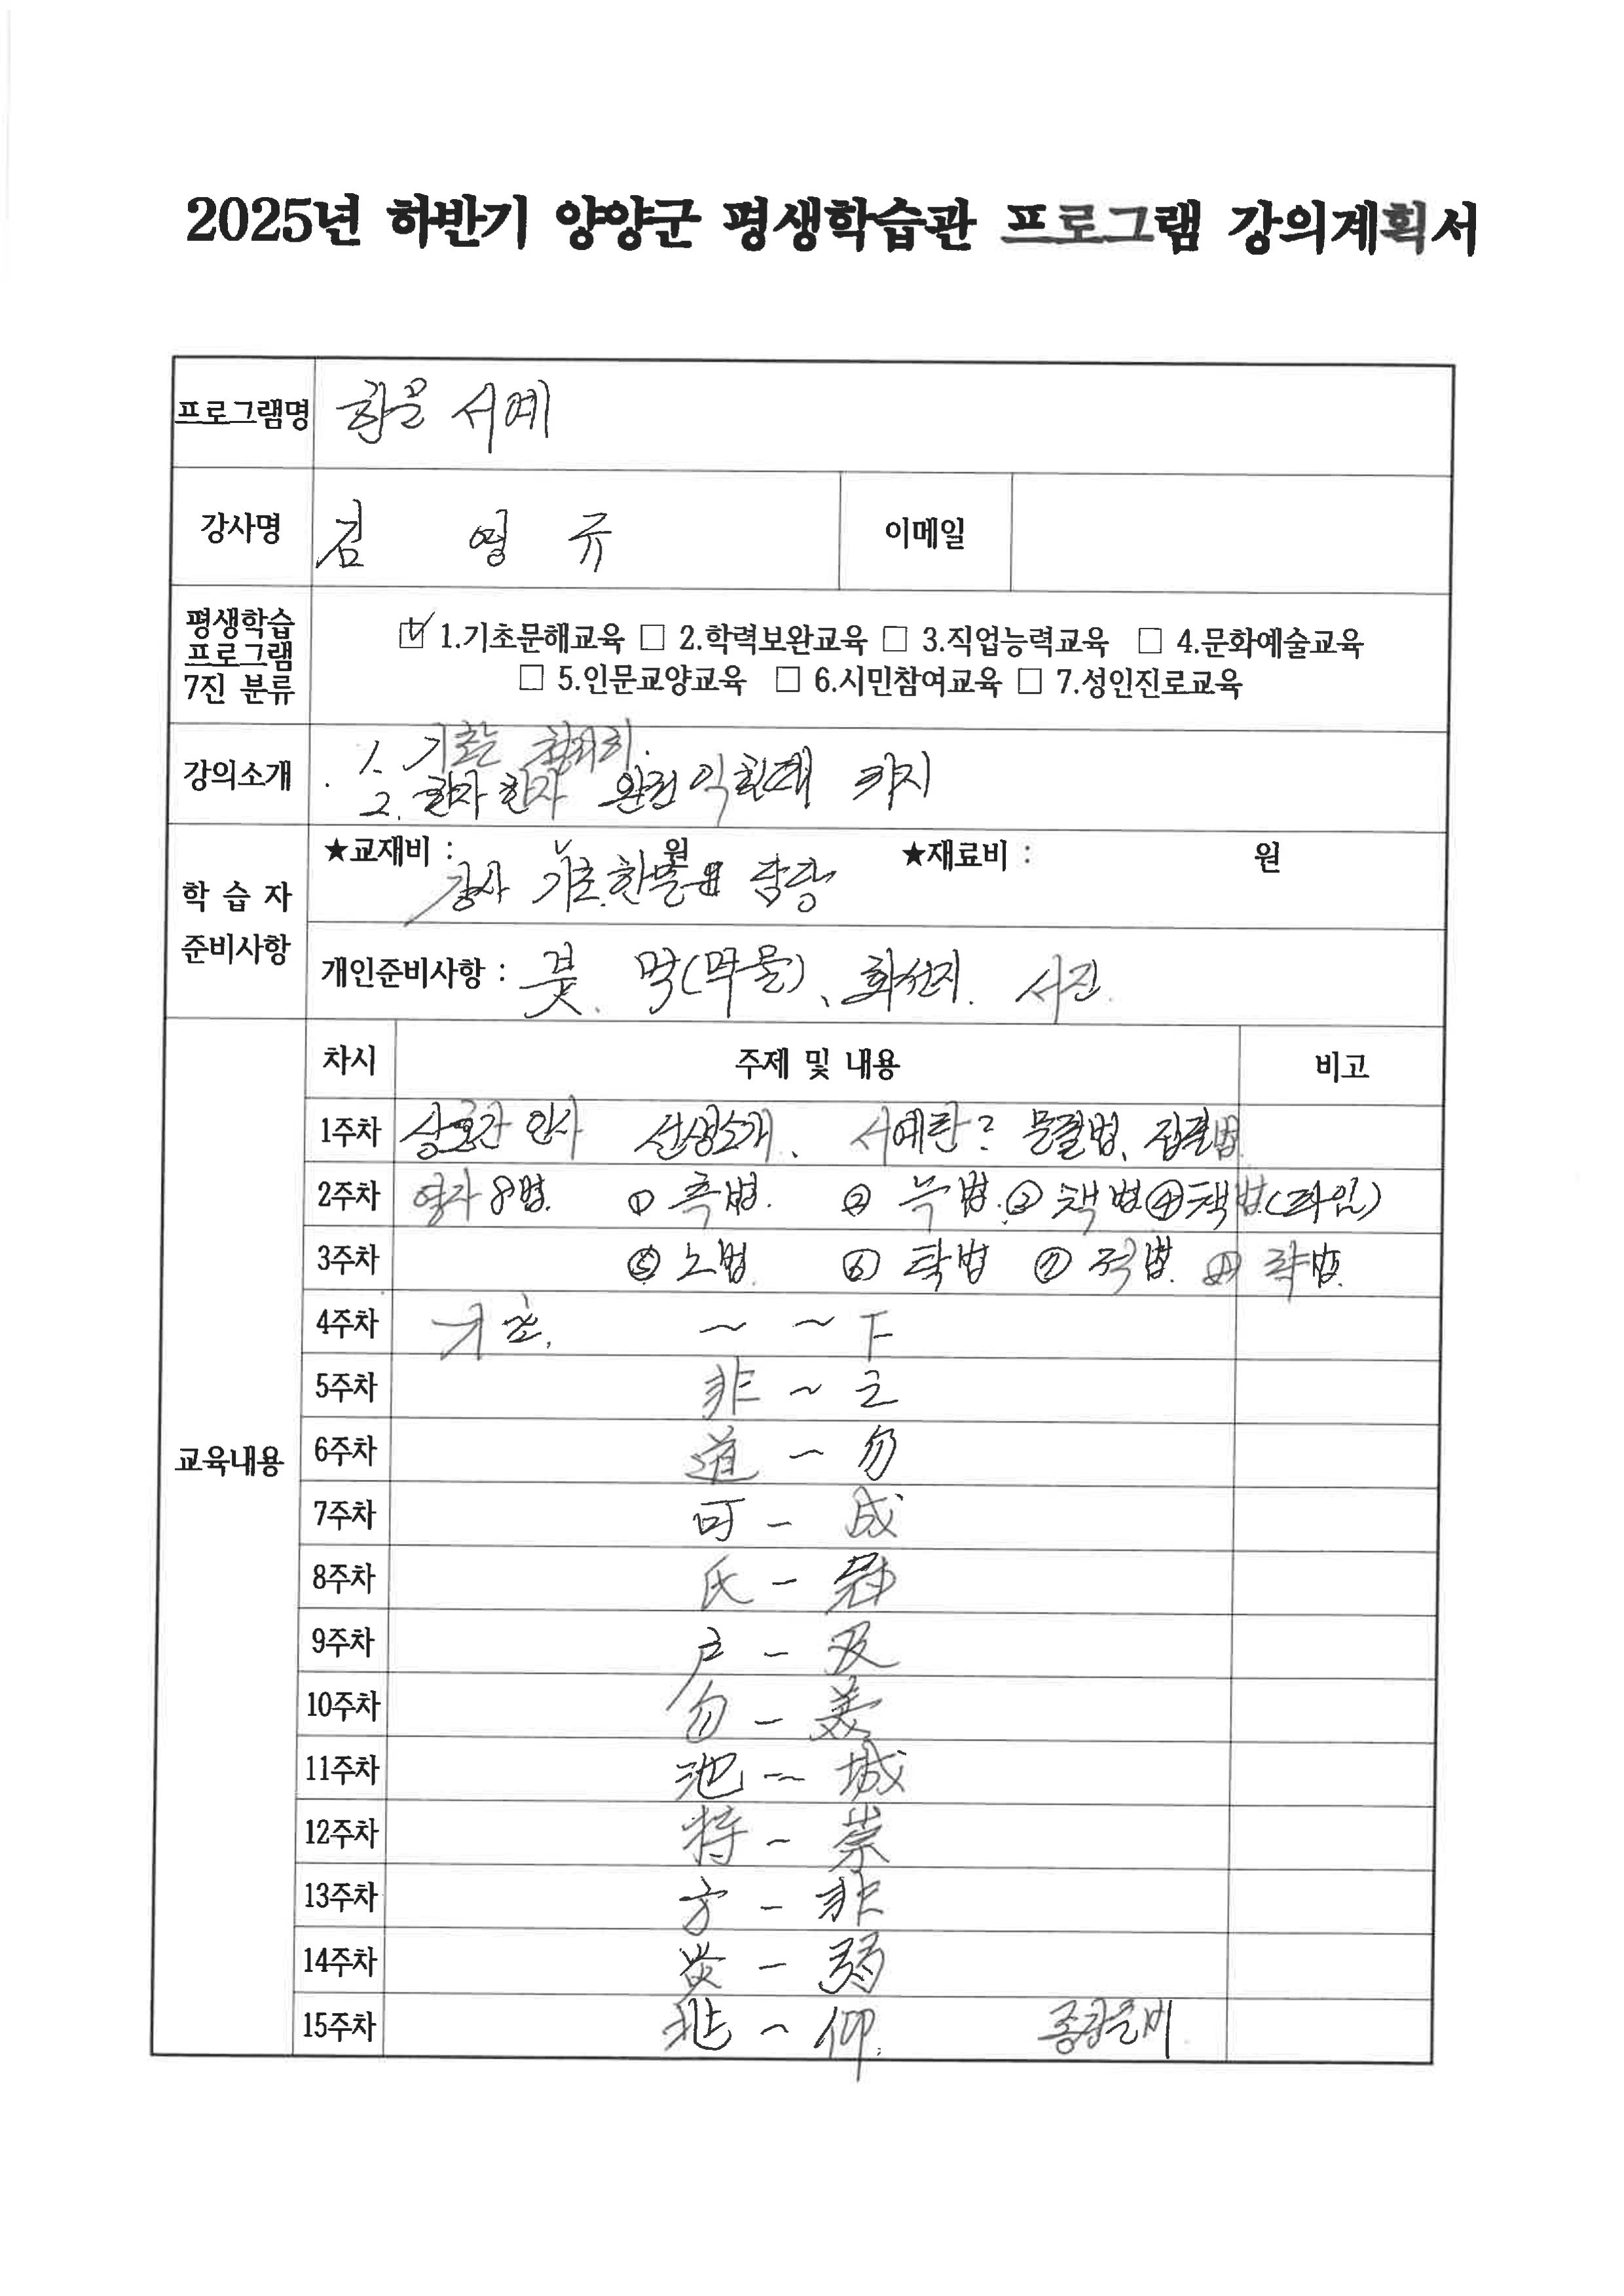 2025년 하반기 양양군 평생학습관 프로그램 강의계획서
프로그램명 한문 서예
강사명 김 영 규 이메일
평생학습 프로그램 7진 분류
☑ 1.기초문해교육 □ 2.학력보완교육 □ 3.직업능력교육 □ 4.문화예술교육
□ 5.인문교양교육 □ 6.시민참여교육 □ 7.성인진로교육
강의소개
1. 기초는
2. 한자 한자 완전 익힐때 까지
학 습 자 준비사항
★교재비 : 원 ★재료비 : 원
강사 기초한문 담당
개인준비사항 : 붓. 먹(먹물), 화선지. 서진.
교육내용
차시 주제 및 내용 비고
1주차 상호간 인사 선생소개. 서예란? 운필법, 집필법
2주차 영자 8법. ① 측법. ② 늑법. ③ 책법 ④ 책법(과임)
3주차 ⑤ 노법. ⑥ 탁법 ⑦ 적법. ⑧ 략법.
4주차 기초. ~ ~ 下
5주차 非 ~ 之
6주차 道 ~ 勿
7주차 可 - 成
8주차 氏 - 冠
9주차 戶 - 及
10주차 勿 - 美
11주차 池 ~ 城
12주차 特 - 崇
13주차 方 - 非
14주차 炭 - 弱
15주차 ~ 仰. 종강준비